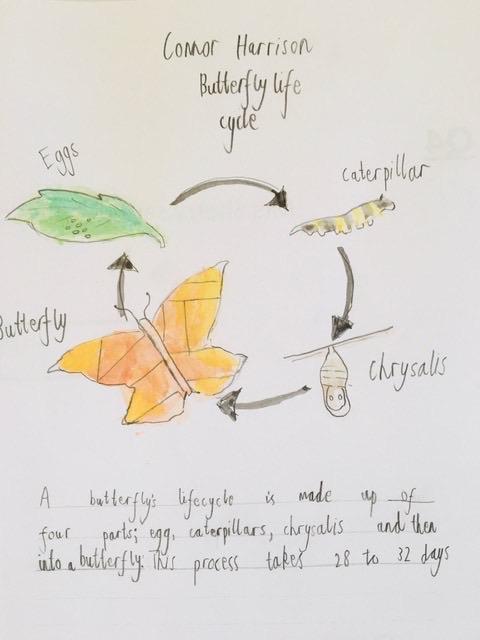 Connor Harrison
Butterfly life
cycle
Eggs
caterpillar
Butterfly
chrysalis
A butterfly's lifecycle is made up of
four parts; egg, caterpillars, chrysalis and then
into a butterfly. This process takes 28 to 32 days